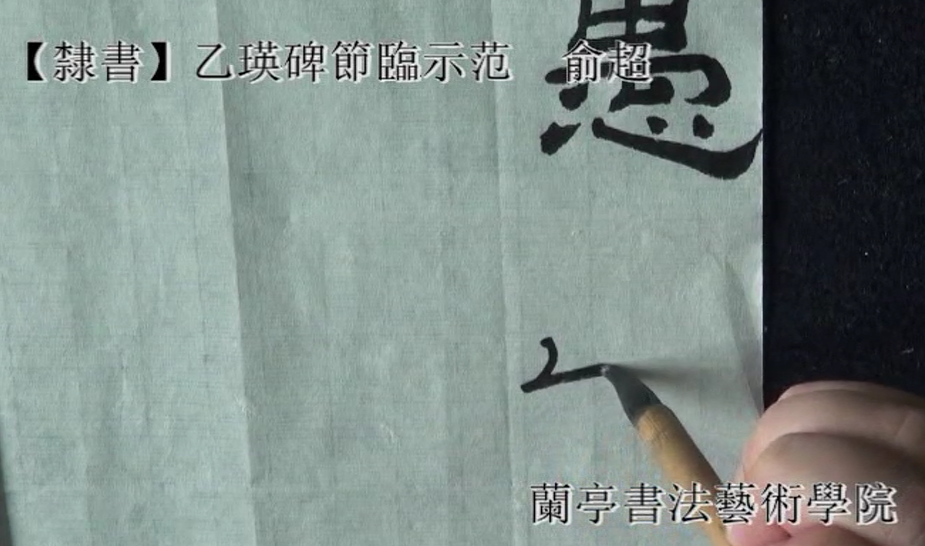 【隸書】乙瑛碑節臨示范 俞超
愚
蘭亭書法藝術學院